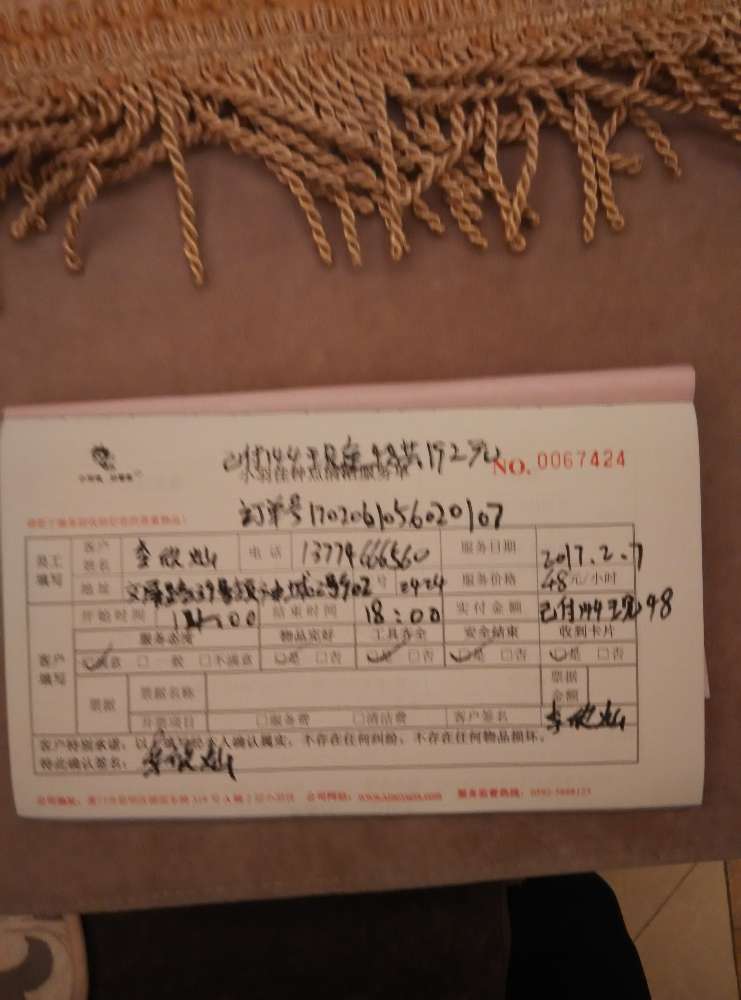 已付144 现金48共192元
NO. 0067424
小羽佳种点清洁服务单
订单号1702061056020107
员工填写 客户姓名 李欣灿 电话 13779666560 服务日期 2017.2.7
地址 2号902号 2424 服务价格 48元/小时
开始时间 14:00 结束时间 18:00 实付金额 已付144 48
服务态度 物品完好 工具齐全 安全结束 收到卡片
客户填写 满意 □一般 □不满意 是 □否 是 □否 是 □否 是 □否
票据 票据名称 票据金额
开票项目 □服务费 □清洁费 客户签名 李欣灿
客户特别承诺：以上填写经本人确认属实，不存在任何纠纷，不存在任何物品损坏。
特此确认签名： 李欣灿
公司地址： 公司网址： 服务监督热线：